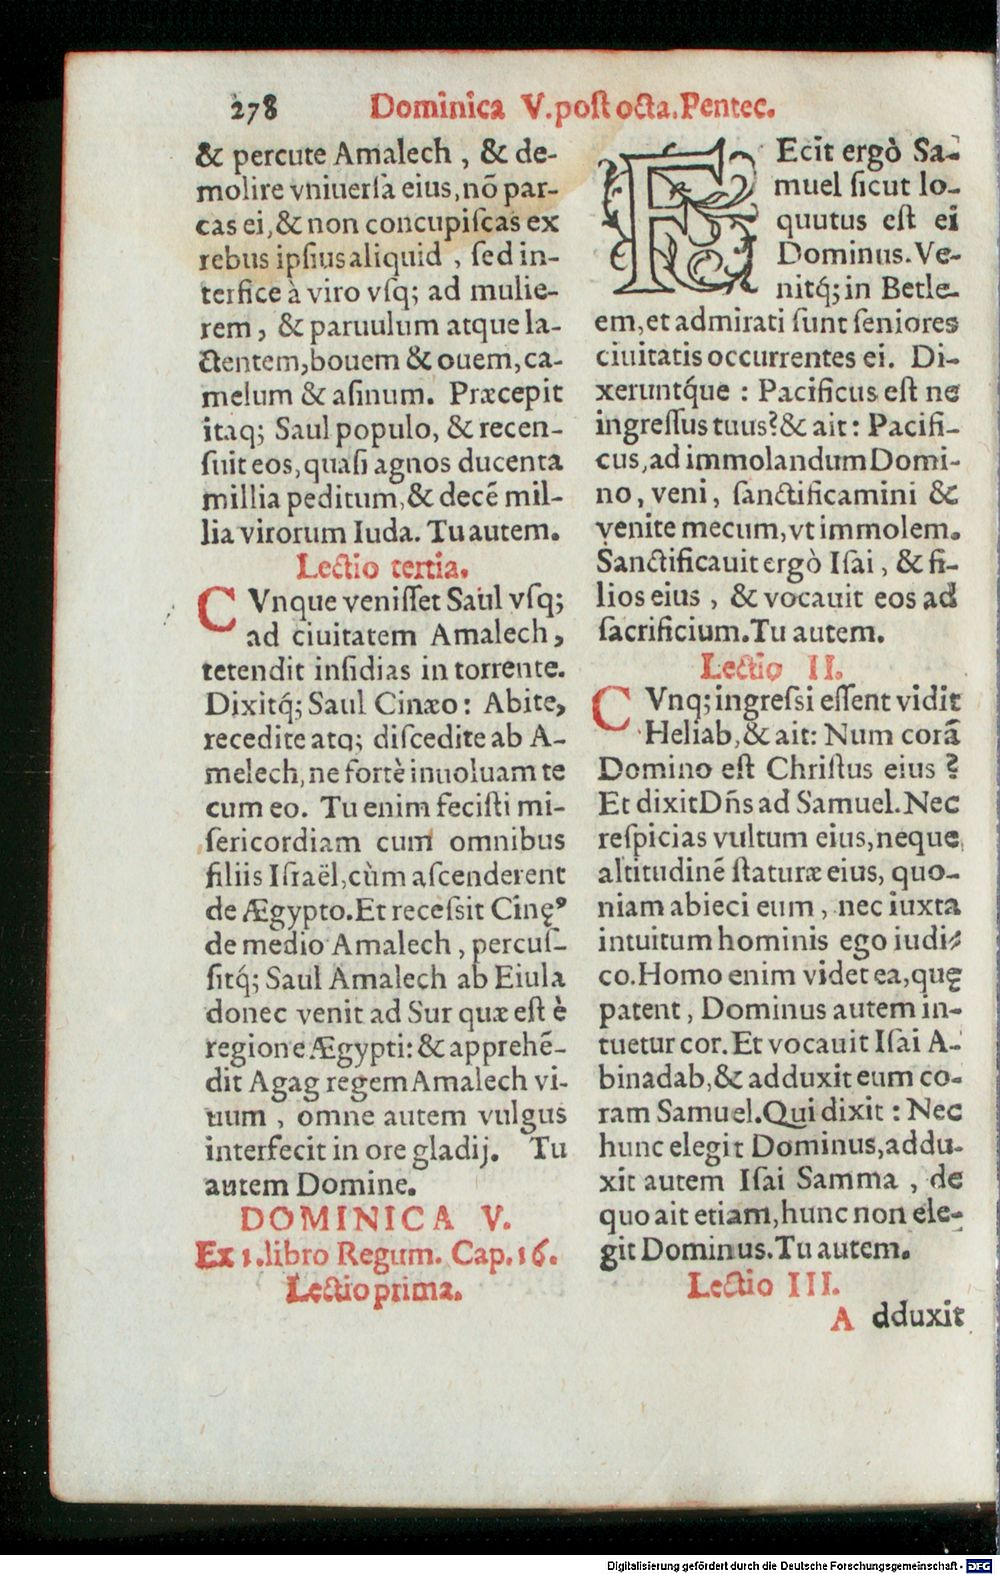 278 Dominica V. post octa. Pentec.
& percute Amalech, & de-
molire vniuersa eius, nõ par-
cas ei, & non concupiscas ex
rebus ipsius aliquid, sed in-
terfice à viro vsq; ad mulie-
rem, & paruulum atque la-
ctentem, bouem & ouem, ca-
melum & asinum. Præcepit
itaq; Saul populo, & recen-
suit eos, quasi agnos ducenta
millia peditum, & decẽ mil-
lia virorum Iuda. Tu autem.
Lectio tertia.
CVnque venisset Saul vsq;
ad ciuitatem Amalech,
tetendit insidias in torrente.
Dixitq́; Saul Cinæo: Abite,
recedite atq; discedite ab A-
melech, ne fortè inuoluam te
cum eo. Tu enim fecisti mi-
sericordiam cum omnibus
filiis Israël, cùm ascenderent
de Ægypto. Et recessit Cinęꝰ
de medio Amalech, percus-
sitq́; Saul Amalech ab Eiula
donec venit ad Sur quæ est è
regione Ægypti: & apprehẽ-
dit Agag regem Amalech vi-
uum, omne autem vulgus
interfecit in ore gladij. Tu
autem Domine.
DOMINICA V.
Ex 1. libro Regum. Cap. 16.
Lectio prima.
FEcit ergò Sa-
muel sicut lo-
quutus est ei
Dominus. Ve-
nitq́; in Betle-
em, et admirati sunt seniores
ciuitatis occurrentes ei. Di-
xeruntq́ue: Pacificus est ne
ingressus tuus? & ait: Pacifi-
cus, ad immolandum Domi-
no, veni, sanctificamini &
venite mecum, vt immolem.
Sanctificauit ergò Isai, & fi-
lios eius, & vocauit eos ad
sacrificium. Tu autem.
Lectio II.
CVnq; ingressi essent vidit
Heliab, & ait: Num corã
Domino est Christus eius?
Et dixit Dñs ad Samuel. Nec
respicias vultum eius, neque
altitudinẽ staturæ eius, quo-
niam abieci eum, nec iuxta
intuitum hominis ego iudi-
co. Homo enim videt ea, quę
patent, Dominus autem in-
tuetur cor. Et vocauit Isai A-
binadab, & adduxit eum co-
ram Samuel. Qui dixit: Nec
hunc elegit Dominus, addu-
xit autem Isai Samma, de
quo ait etiam, hunc non ele-
git Dominus. Tu autem.
Lectio III.
A dduxit
Digitalisierung gefördert durch die Deutsche Forschungsgemeinschaft - DFG